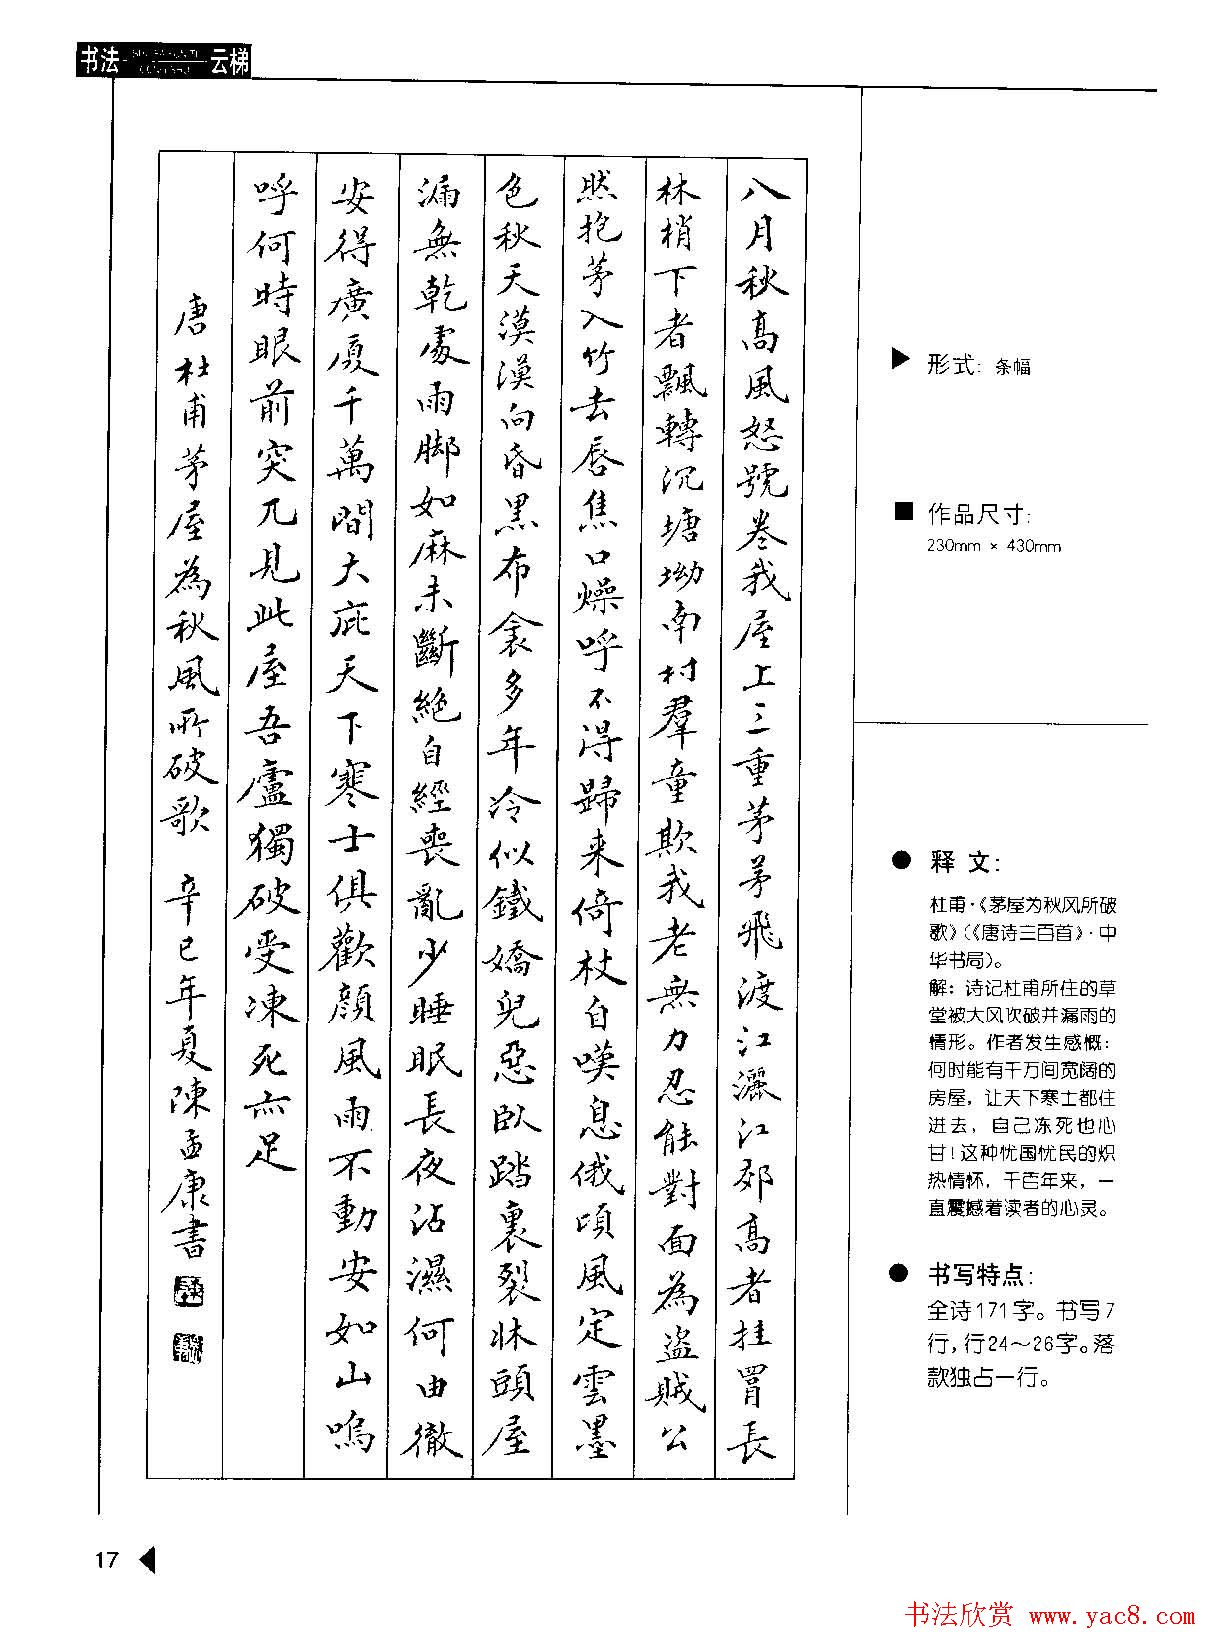 书法 云梯
八月秋高風怒號卷我屋上三重茅茅飛渡江灑江郊高者挂罥長
林梢下者飄轉沉塘坳南村羣童欺我老無力忍能對面為盜賊公
然抱茅入竹去唇焦口燥呼不得歸来倚杖自嘆息俄頃風定雲墨
色秋天漠漠向昏黑布衾多年冷似鐵嬌兒惡臥踏裏裂牀頭屋
漏無乾處雨脚如麻未斷絕自經喪亂少睡眠長夜沾濕何由徹
安得廣廈千萬間大庇天下寒士俱歡顏風雨不動安如山嗚
呼何時眼前突兀見此屋吾廬獨破受凍死亦足
唐杜甫茅屋為秋風所破歌 辛巳年夏陳孟康書
▶ 形式：条幅
■ 作品尺寸：
230mm × 430mm
● 释文：
杜甫·《茅屋为秋风所破
歌》（《唐诗三百首》·中
华书局）。
解：诗记杜甫所住的草
堂被大风吹破并漏雨的
情形。作者发生感慨：
何时能有千万间宽阔的
房屋，让天下寒士都住
进去，自己冻死也心
甘！这种忧国忧民的炽
热情怀，千百年来，一
直震撼着读者的心灵。
● 书写特点：
全诗171字。书写7
行，行24～26字。落
款独占一行。
17
书法欣赏 www.yac8.com